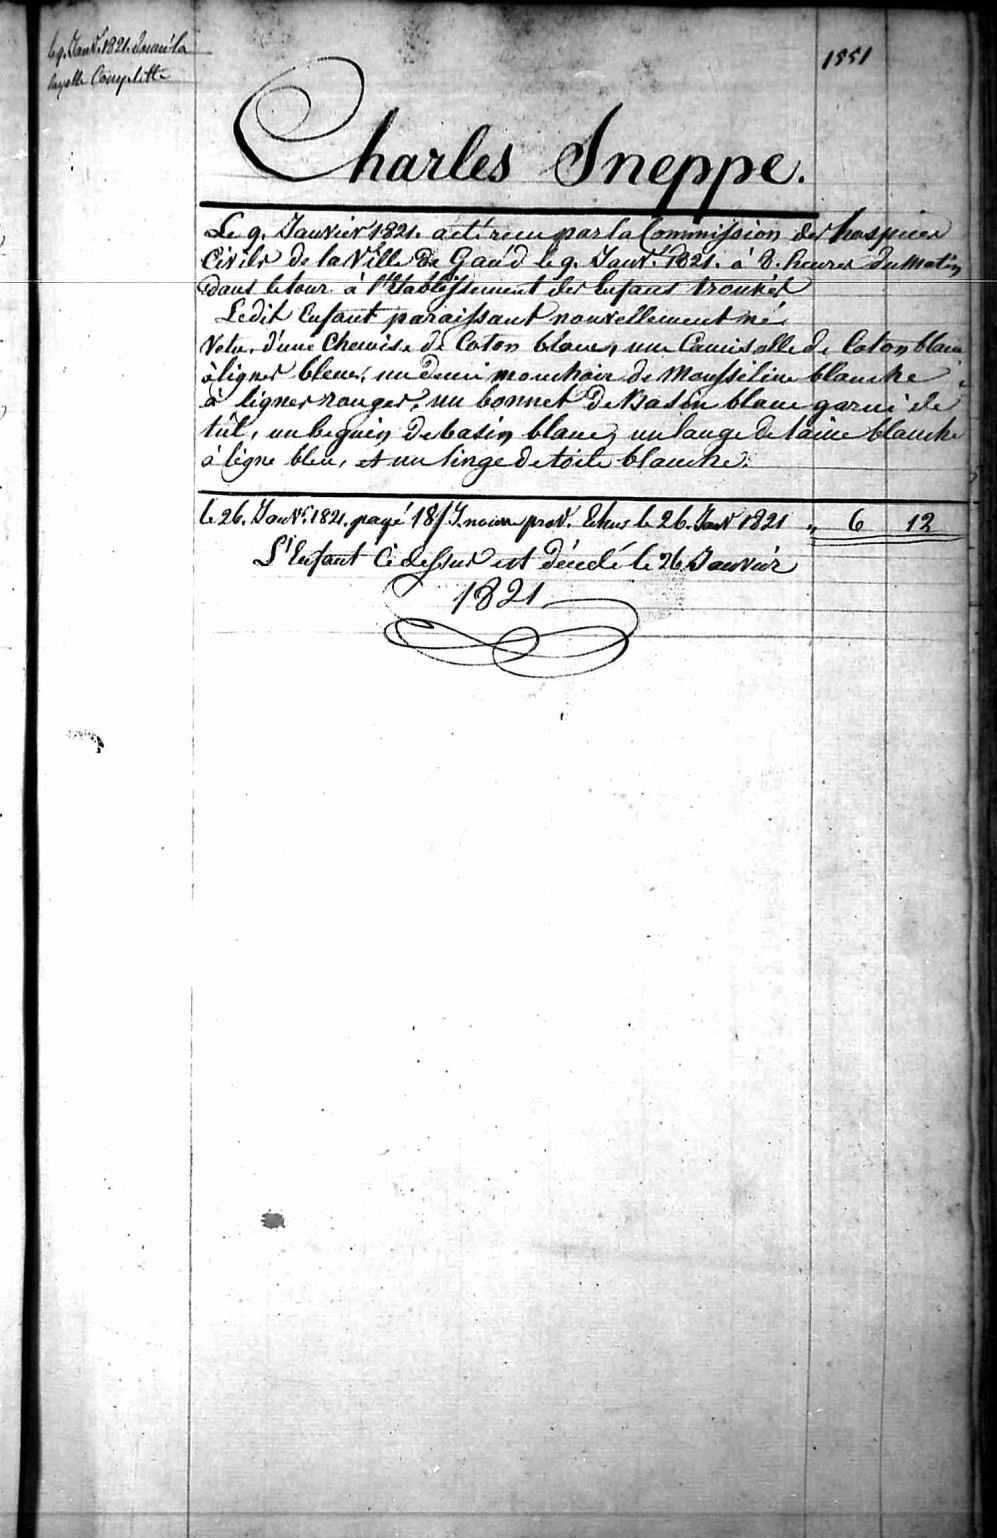 le 9. Janv. 1821. donné la
layette Complitte
1551
Charles Sneppe.
Le 9. Janvier 1821. a eté recu par la Commission des hospices
Civils de la Ville de Gand le 9. Janv. 1821. à 8. heures du Matin
dans le tour à l'Etablissement des Enfans trouvés
Ledit Enfant paraissant nouvellement né
Vetu, d'une Chemise de Coton blanc, une Camisolle de Coton blanc
à lignes bleues, un demi mouchoir de Mousseline blanche
à lignes rouges, un bonnet de Basin blanc garni de
tul, un beguin de basin blanc, un lange de laine blanche
à ligne bleu, et un linge de toile blanche.
le 26. Janv. 1821. payé 18 J. prov. Echus le 26. Janv 1821 " 6 12
L'Enfant Ci dessus est décédé le 26 Janvier
1821